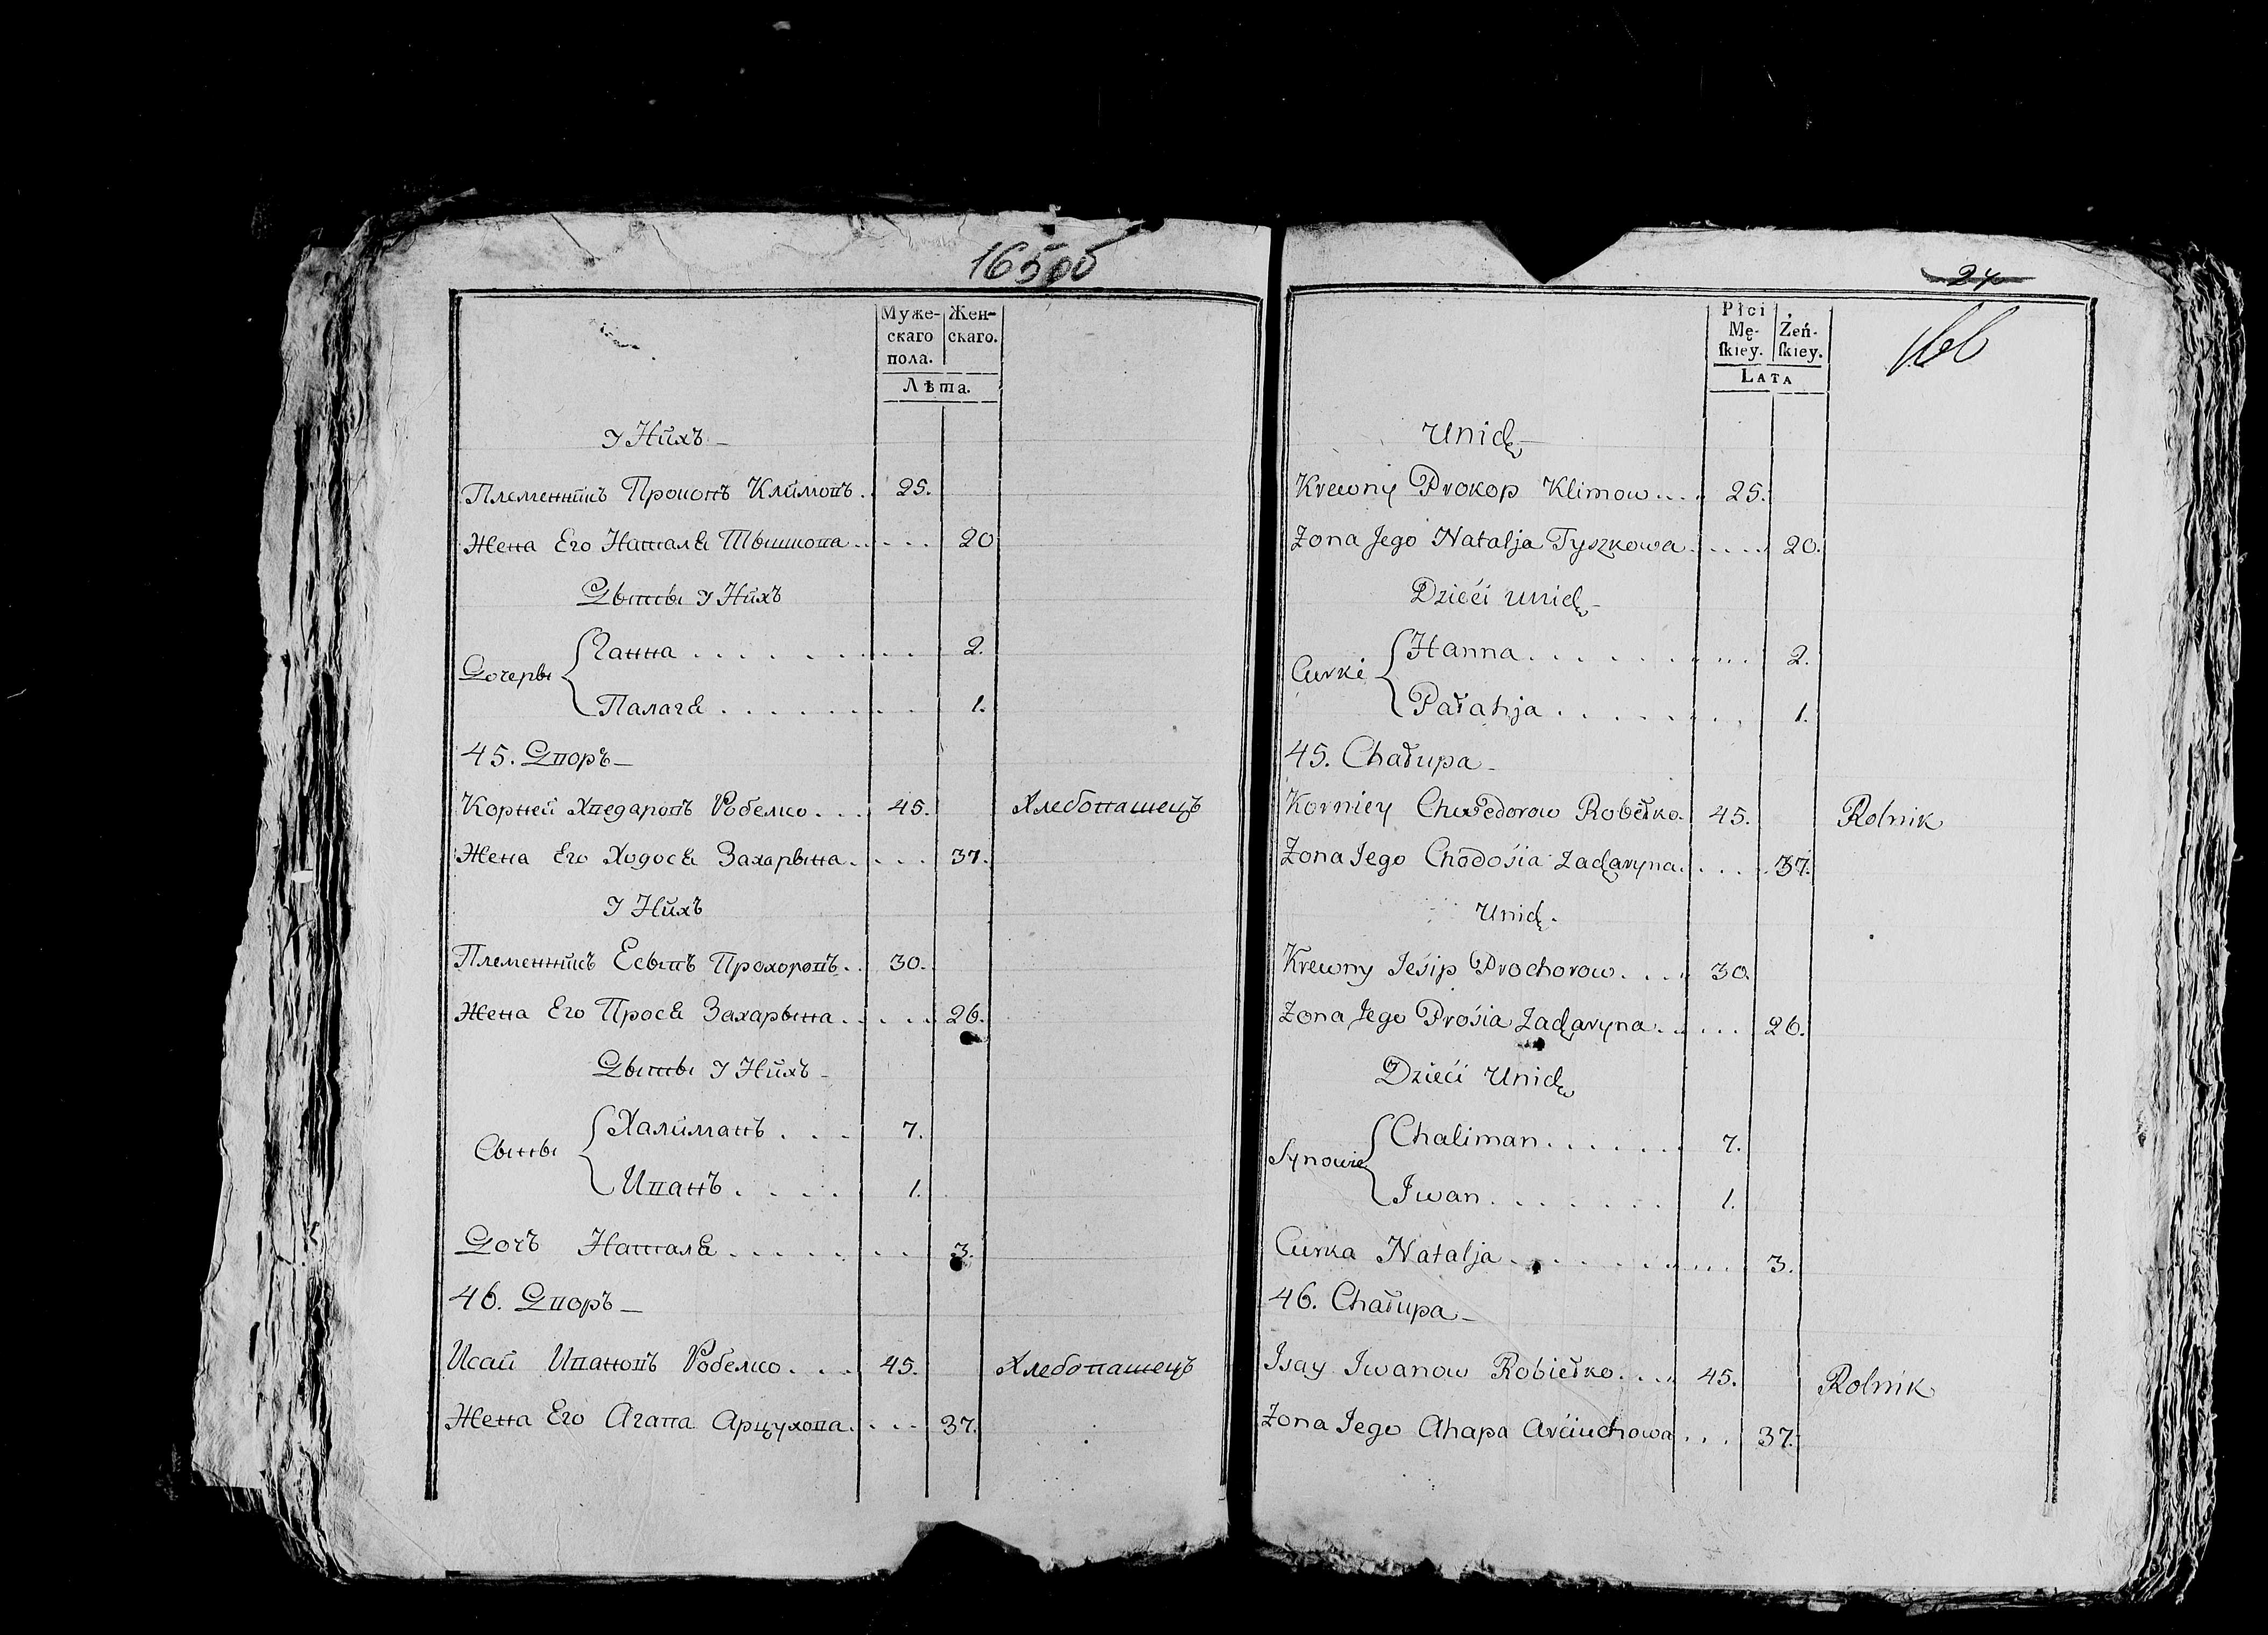 165об
Муже- Жен-
скаго скаго.
пола.
Лѣта.
У Нихъ
Племенникъ Прокопъ Климовъ . 25.
Жена Его Наталя Тышкова . . . . 20
Дѣти У Нихъ
Дочеры
Ганна . . . . . . . . . 2.
Палагя . . . . . . . . 1.
45. Дворъ
Корней Хведаровъ Робелко . . . 45. Хлебопашецъ
Жена Его Ходося Захарьина . . . . 37.
У Нихъ
Племенникъ Есыпъ Прохоровъ . . 30.
Жена Его Прося Захарьина . . . . . 26.
Дѣти У Нихъ
Сыны
Халиманъ . . . 7.
Иванъ . . . . 1.
Дочъ Наталя . . . . . . . 3.
46. Дворъ
Исай Ивановъ Робелко . . . 45. Хлебопашецъ
Жена Его Агапа Арцухова . . . . 37.
24
166
Płci
Mę- Żeń-
ſkiey. ſkiey.
LATA
Unich
Krewny Prokop Klimow . . . . 25.
Żona Jego Natalja Tyszkowa . . . . . 20.
Dzieći Unich
Curki
Hanna . . . . . . . . . . 2.
Pałahja . . . . . . . . 1.
45. Chałupa
Korniey Chwedorow Robiełko . 45. Rolnik
Żona Jego Chodośia Zacharyna . . . . . 37.
Unich.
Krewny Jeśip Prochorow . . . . 30.
Żona Jego Prośia Zacharyna . . . . . 26.
Dzieći Unich
Synowie
Chaliman . . . . . . 7.
Iwan . . . . . . . 1.
Curka Natalja . . . . . . . . . . . 3.
46. Chałupa
Isay Iwanow Robiełko . . . . 45. Rolnik
Żona Jego Ahapa Arćiuchowa . . . 37.